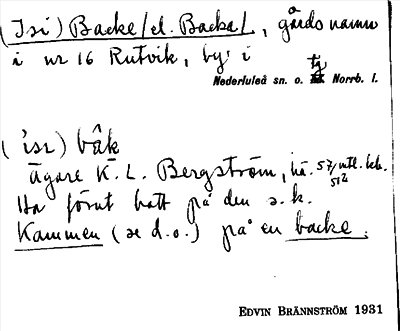 (Isi) Backe /el. Backa/, gårdsnamn
i nr 16 Rutvik, by i
Nederluleå sn. o. tg Norrb. l.
('isɩ) bâk
Ägare K. L. Bergström, hä. 57/512 mtl. kb.
Ha förut hatt på den s. k.
Kammen (se d. o.) på en backe.
EDVIN BRÄNNSTRÖM 1931